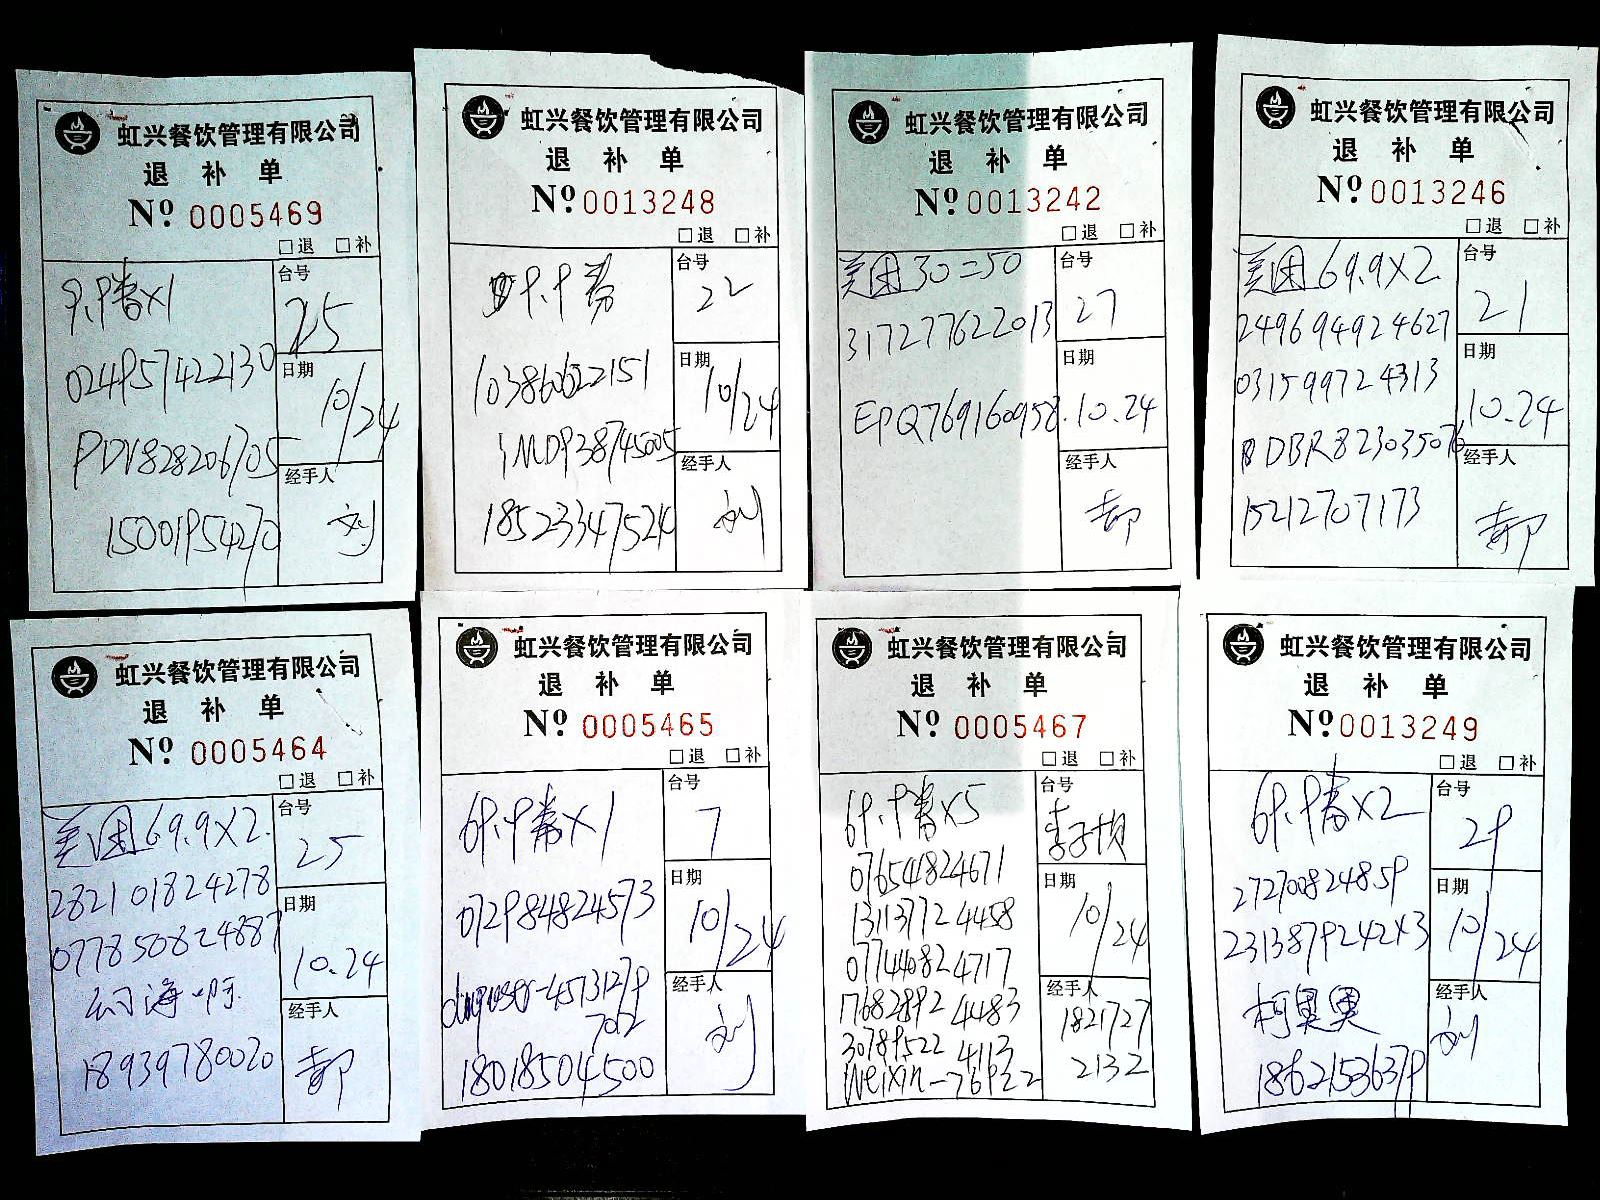 虹兴餐饮管理有限公司
退 补 单
Nº 0005469
□退 □补
9.9券x1
024957422130
PDV828206705
15001954270
台号
25
日期
10/24
经手人
刘
虹兴餐饮管理有限公司
退 补 单
Nº 0013248
□退 □补
9.9券
103860622151
18523347524
台号
22
日期
10/24
经手人
刘
虹兴餐饮管理有限公司
退 补 单
Nº 0013242
□退 □补
美团30=50
317277622013
EPQ769160958
台号
27
日期
10.24
经手人
郝
虹兴餐饮管理有限公司
退 补 单
Nº 0013246
□退 □补
美团69.9X2
249694924627
031599724313
DBR823035076
15212707173
台号
21
日期
10.24
经手人
郝
虹兴餐饮管理有限公司
退 补 单
Nº 0005464
□退 □补
美团69.9X2.
282101824278
077850824887
18939780020
台号
25
日期
10.24
经手人
郝
虹兴餐饮管理有限公司
退 补 单
Nº 0005465
□退 □补
69.9券x1
072984824573
18018504500
台号
7
日期
10/24
经手人
刘
虹兴餐饮管理有限公司
退 补 单
Nº 0005467
□退 □补
69.9券x5
076541824671
131137724458
077440824717
176828924483
307895224113
Weixin-76922
台号
李子坝
日期
10/24
经手人
1821727
2132
虹兴餐饮管理有限公司
退 补 单
Nº 0013249
□退 □补
69.9券x2
272700824859
柯奥奥
18621536379
台号
29
日期
10/24
经手人
刘